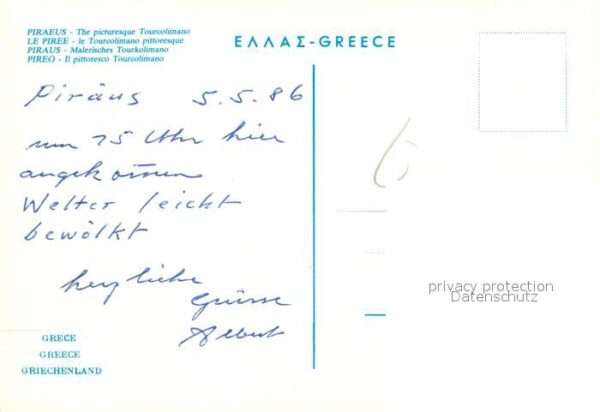 PIRAEUS - The picturesque Tourcolimano
LE PIREE - le Tourcolimano pittoresque
PIRAUS - Malerisches Tourkolimano
PIREO - Il pittoresco Tourcolimano
ΕΛΛΑΣ-GREECE
Piräus 5.5.86
um 15 Uhr hier
angekommen
Wetter leicht
bewölkt
herzliche
Grüsse
Albert
6
privacy protection
Datenschutz
GRECE
GREECE
GRIECHENLAND